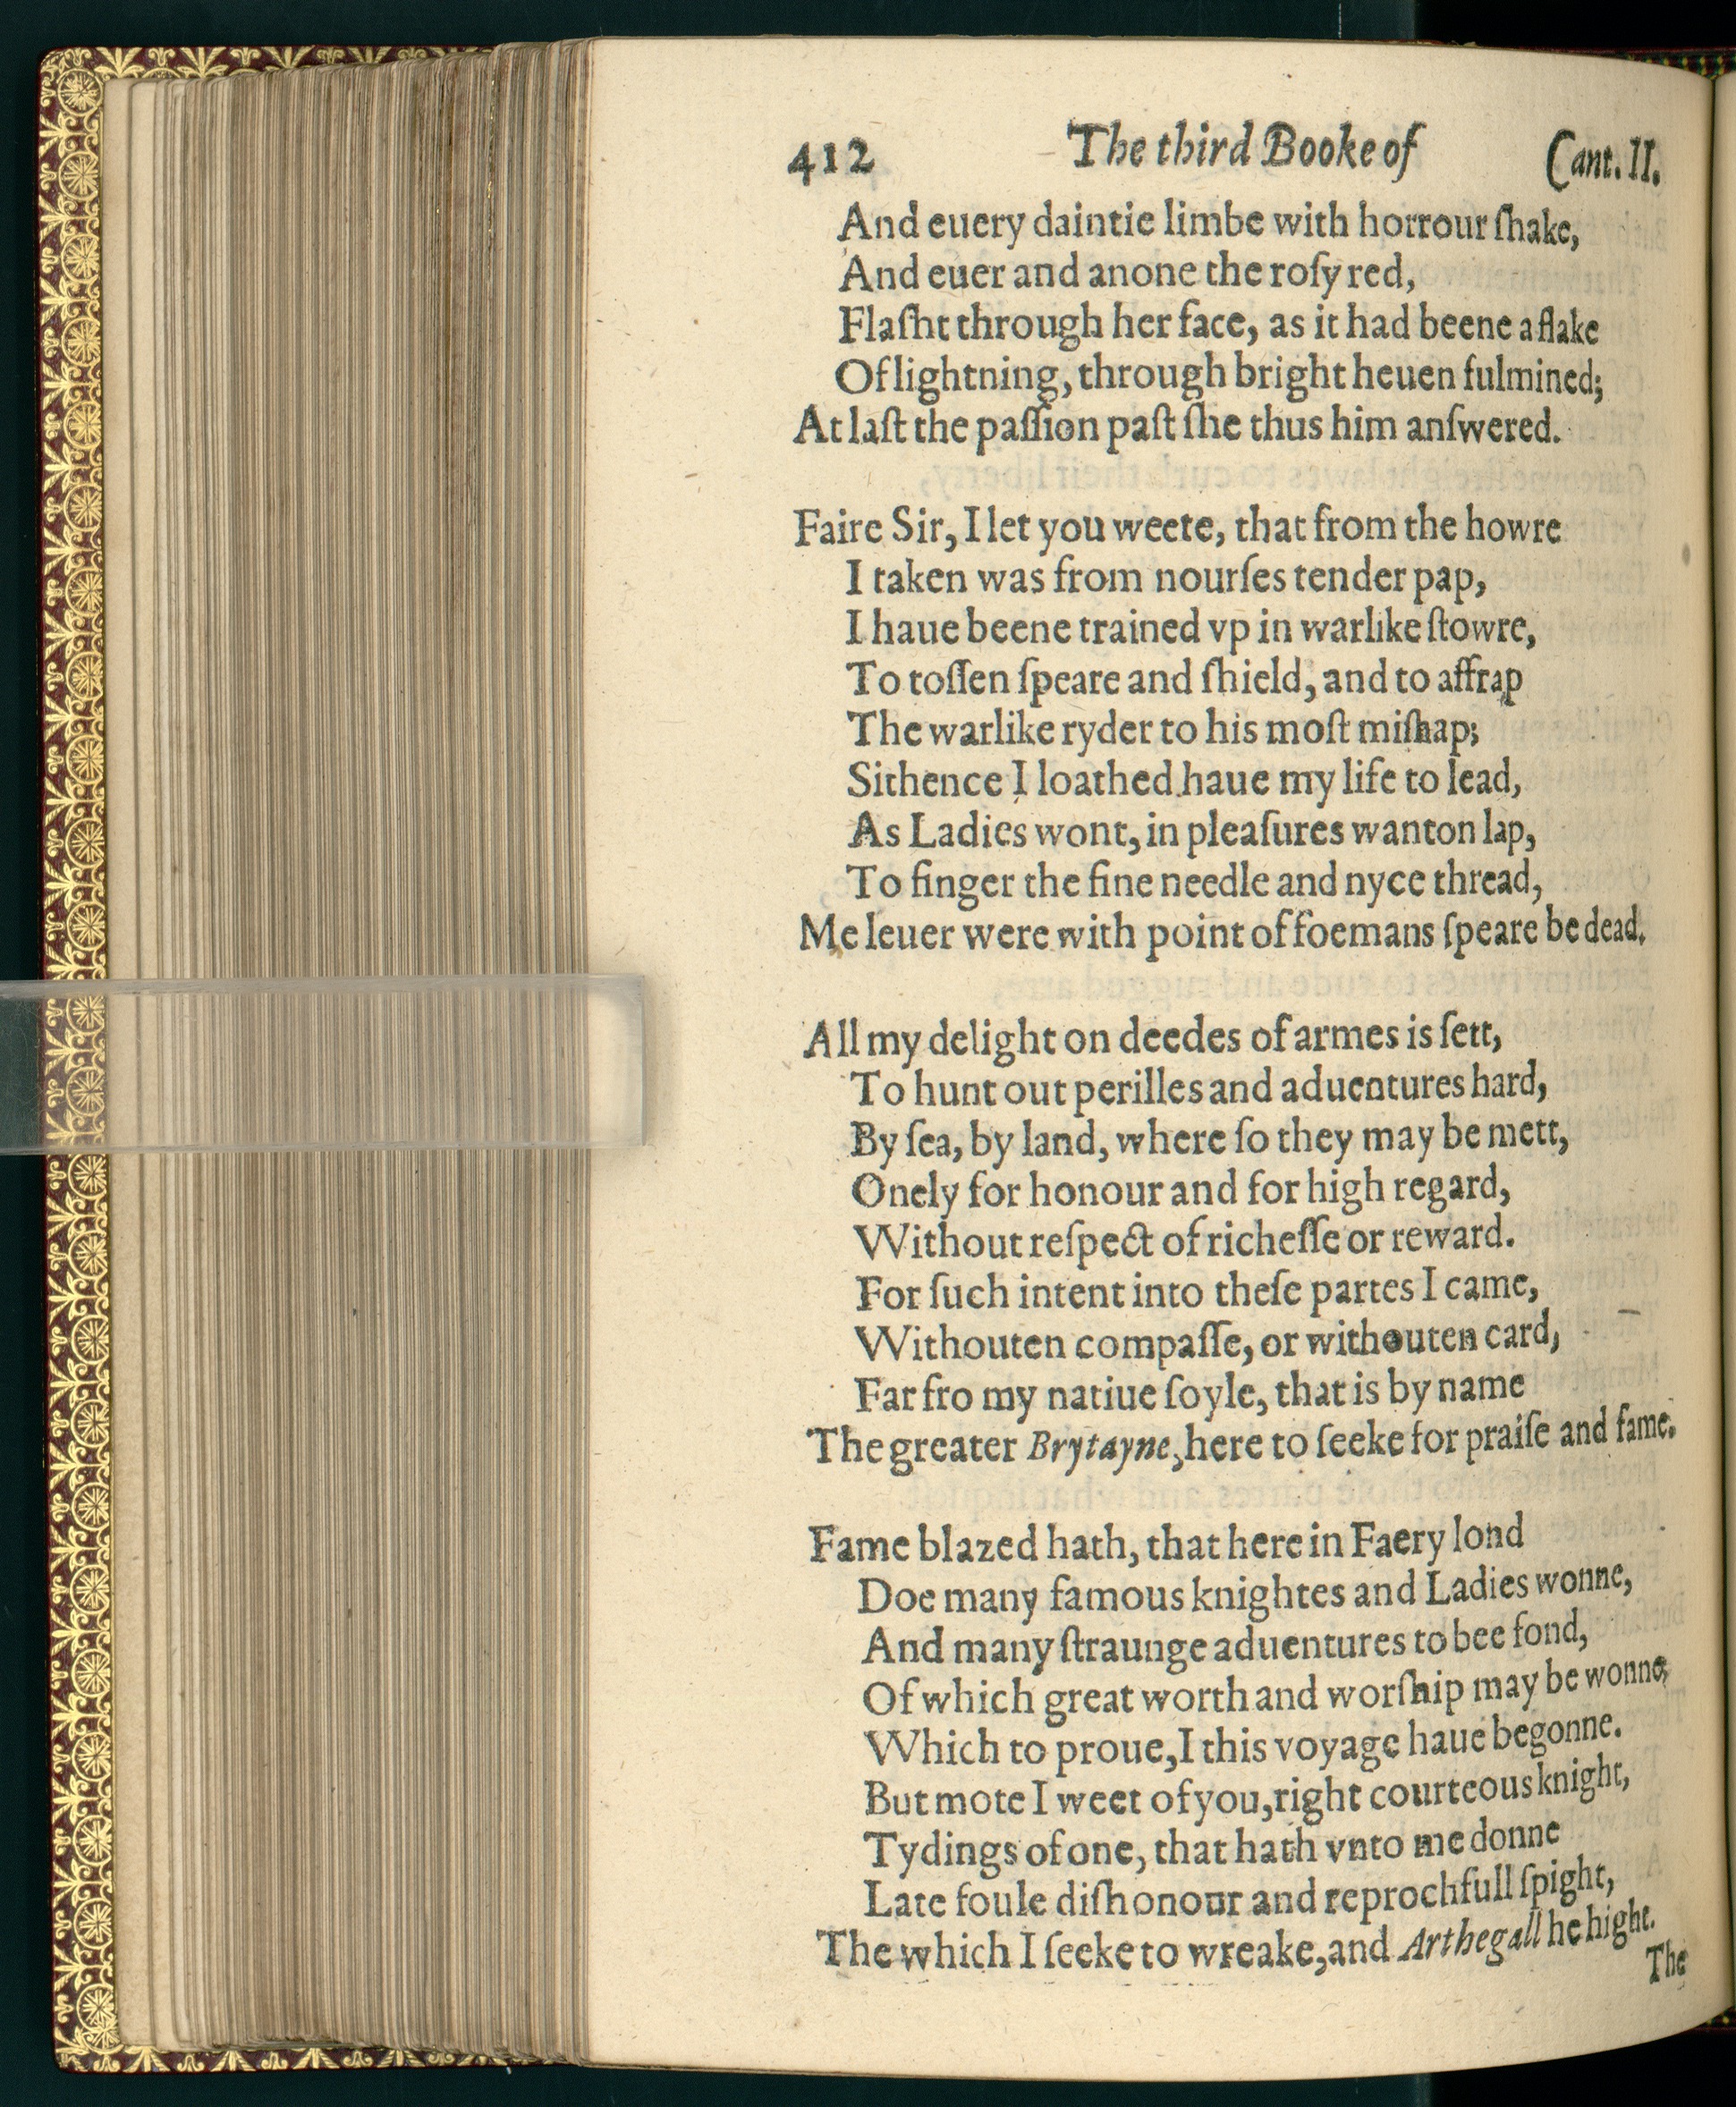 412 The third Booke of Cant. II.
And euery daintie limbe with horrour ſhake,
And euer and anone the roſy red,
Flaſht through her face, as it had beene a flake
Of lightning, through bright heuen fulmined;
At laſt the paſſion paſt ſhe thus him anſwered.
Faire Sir, I let you weete, that from the howre
I taken was from nourſes tender pap,
I haue beene trained vp in warlike ſtowre,
To toſſen ſpeare and ſhield, and to affrap
The warlike ryder to his moſt miſhap;
Sithence I loathed haue my life to lead,
As Ladies wont, in pleaſures wanton lap,
To finger the fine needle and nyce thread,
Me leuer were with point of foemans ſpeare be dead.
All my delight on deedes of armes is ſett,
To hunt out perilles and aduentures hard,
By ſea, by land, where ſo they may be mett,
Onely for honour and for high regard,
Without reſpect of richeſſe or reward.
For ſuch intent into theſe partes I came,
Withouten compaſſe, or withouten card,
Far fro my natiue ſoyle, that is by name
The greater Brytayne, here to ſeeke for praiſe and fame.
Fame blazed hath, that here in Faery lond
Doe many famous knightes and Ladies wonne,
And many ſtraunge aduentures to bee fond,
Of which great worth and worſhip may be wonne,
Which to proue, I this voyage haue begonne.
But mote I weet of you, right courteous knight,
Tydings of one, that hath vnto me donne
Late foule diſhonour and reprochfull ſpight,
The which I ſeeke to wreake, and Arthegall he hight.
The